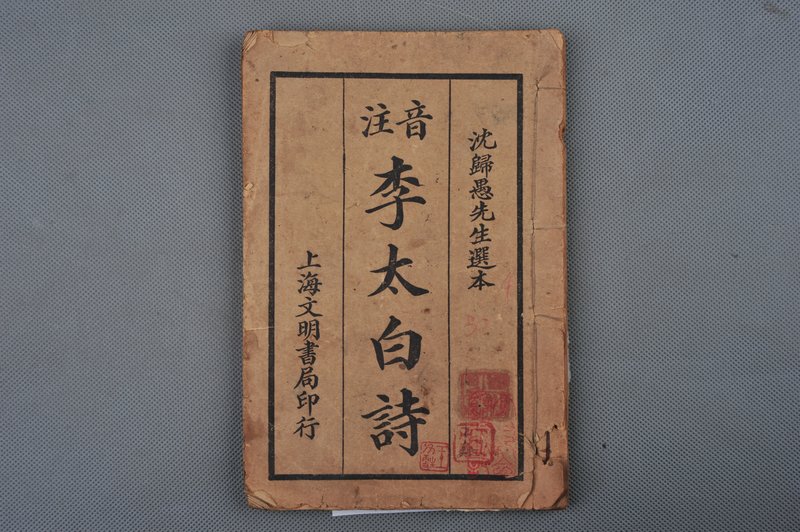 沈歸愚先生選本
音注
李太白詩
上海文明書局印行